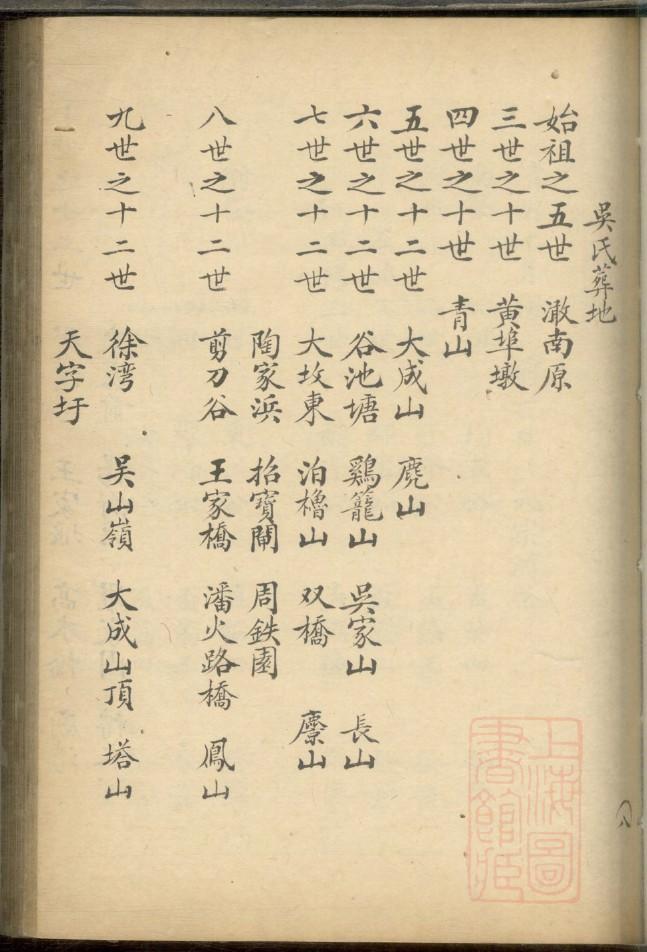 吳氏葬地
始祖之五世 澉南原
三世之十世 黄埠墩
四世之十世 青山
五世之十二世 大成山 麂山
六世之十二世 谷池塘 鷄籠山 吳家山 長山
七世之十二世 大坟東 泊櫓山 双橋 麖山
陶家浜 招寳閘 周鉄園
八世之十二世 剪刀谷 王家橋 潘火路橋 鳳山
九世之十二世 徐湾 吴山嶺 大成山頂 塔山
天字圩
上海圖書館藏